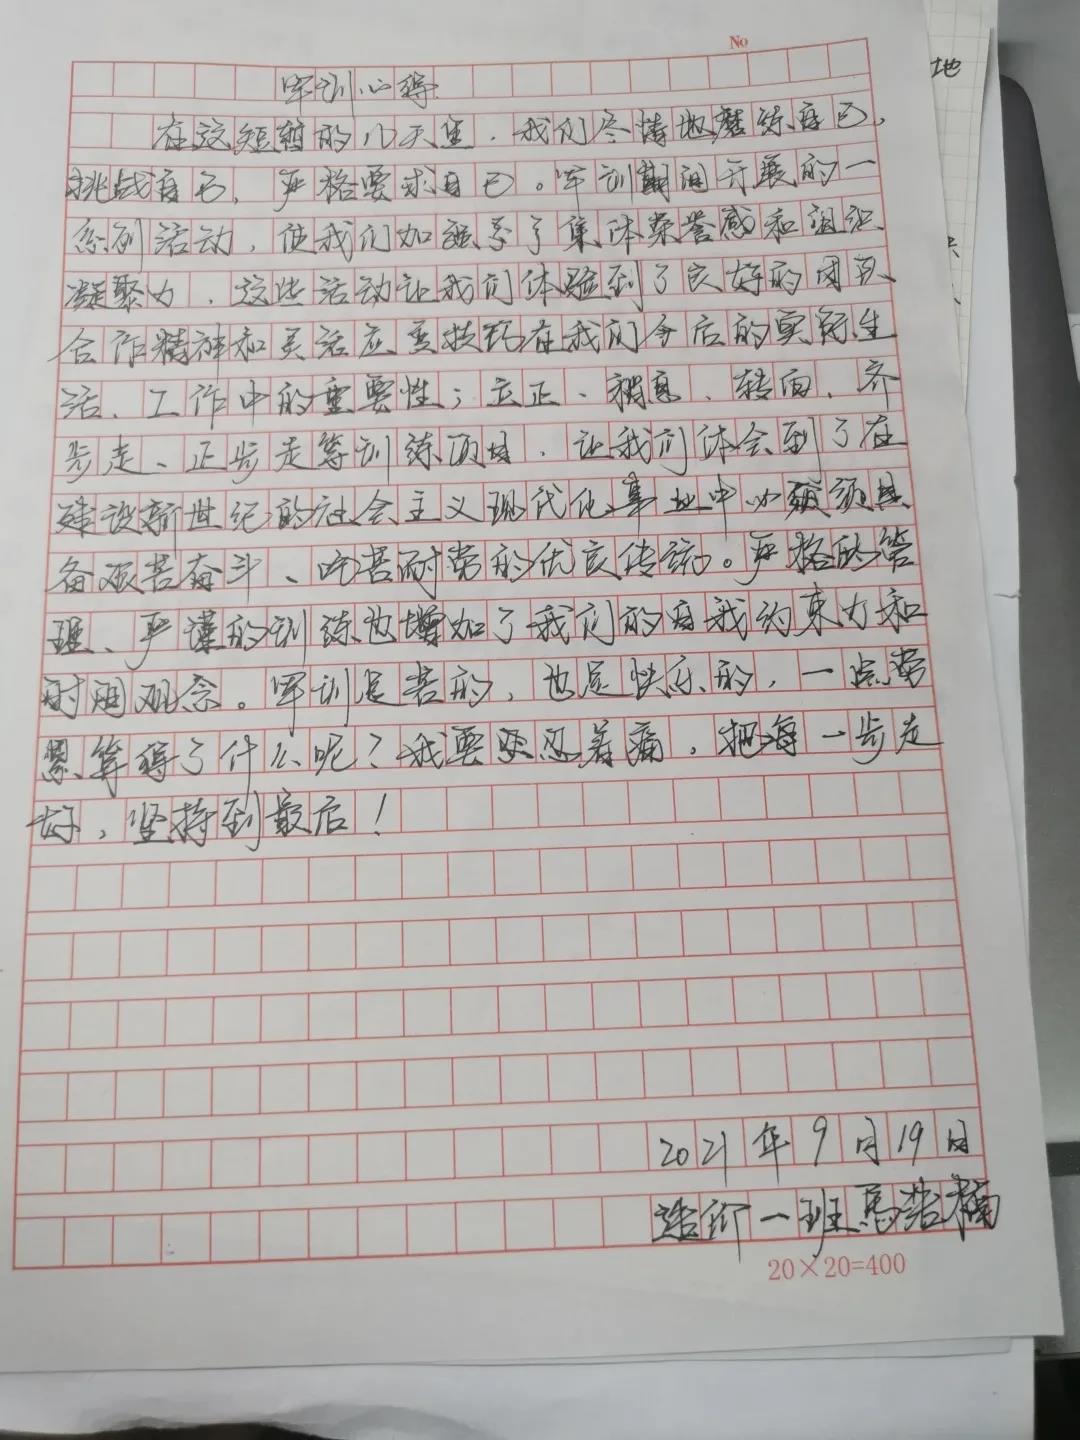 No
军训心得
在这短暂的几天里，我们尽情地磨练自己，
挑战自己，严格要求自己。军训期间开展的一
系列活动，使我们加强了集体荣誉感和组织
凝聚力，这些活动让我们体验到了良好的团队
合作精神和灵活应变技巧在我们今后的实际生
活、工作中的重要性；立正、稍息、转向、齐
步走、正步走等训练项目，让我们体会到了在
建设新世纪的社会主义现代化事业中必须具
备艰苦奋斗、吃苦耐劳的优良传统。严格的管
理、严谨的训练也增加了我们的自我约束力和
时间观念。军训是苦的，也是快乐的，一点劳
累算得了什么呢？我要忍着痛，把每一步走
好，坚持到最后！
2021年9月19日
一班马浩楠
20×20=400
地